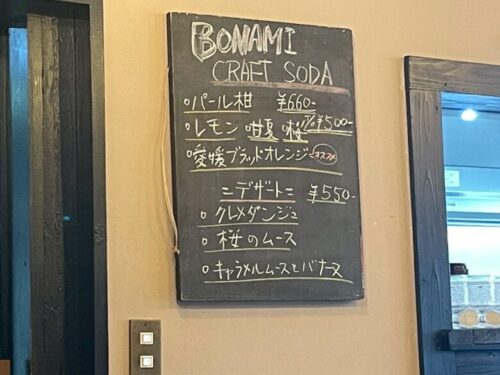 BONAMI
CRAFT SODA
○パール柑 ¥660-
○レモン 甘夏 桜 ¥500-
○愛媛ブラッドオレンジ オススメ
=デザート= ¥550-
○クレメダンジュ
○桜のムース
○キャラメルムースとバナーヌ